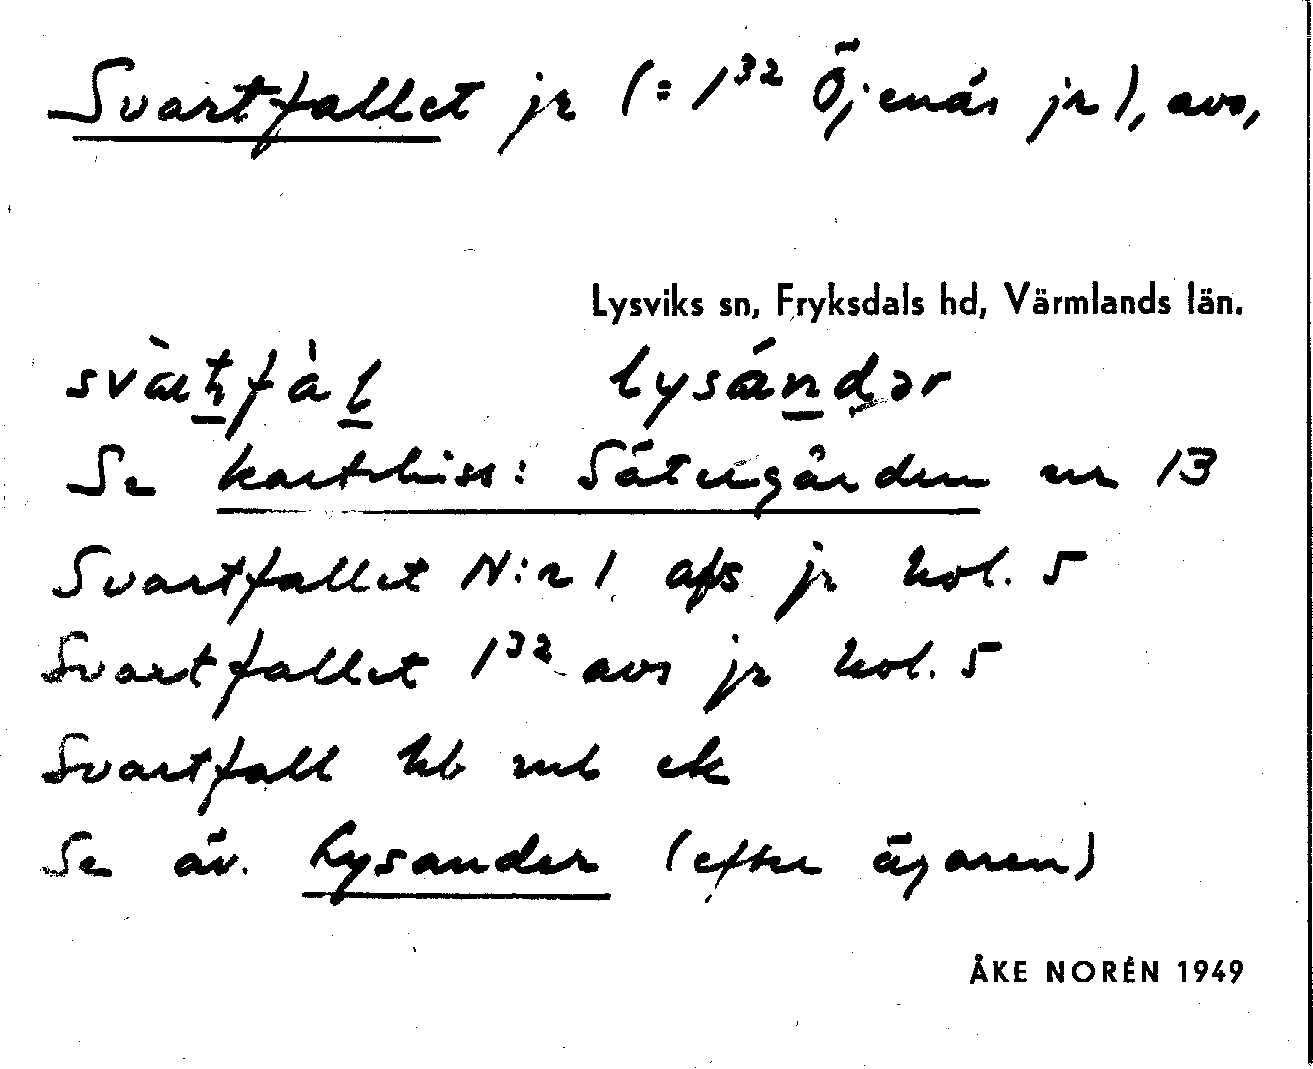 Svartfallet jr (= 1³² Öjenäs jr), avs,
Lysviks sn, Fryksdals hd, Värmlands län.
lysándər
Se kartskiss: Sätergården nr 13
Svartfallet N:r 1 afs jr kol. 5
Svartfallet 1³² avs jr kol. 5
Svartfall hb mb ek
Se äv. Lysander (efter ägaren)
ÅKE NORÉN 1949